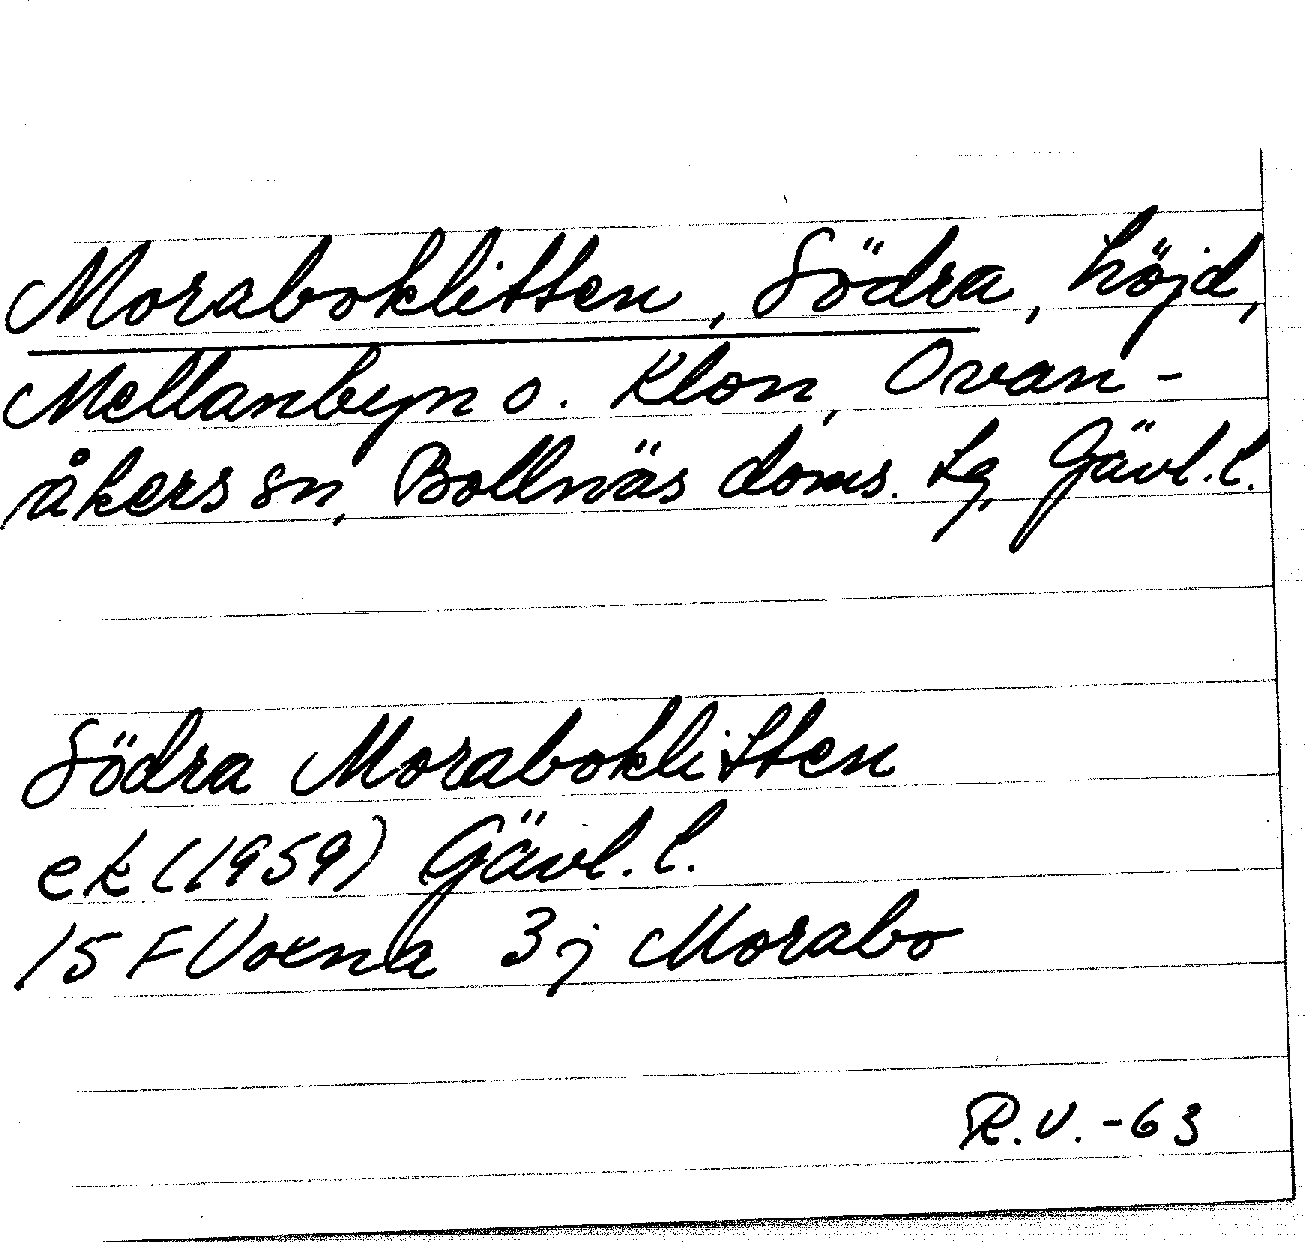 Moraboklitten, Södra, höjd,
Mellanbyn o. Klon, Ovan-
åkers sn, Bollnäs doms. tg, Gävl. l.
Södra Moraboklitten
ek (1959) Gävl. l.
15 F Voxna 3 j Morabo
R.V. -63